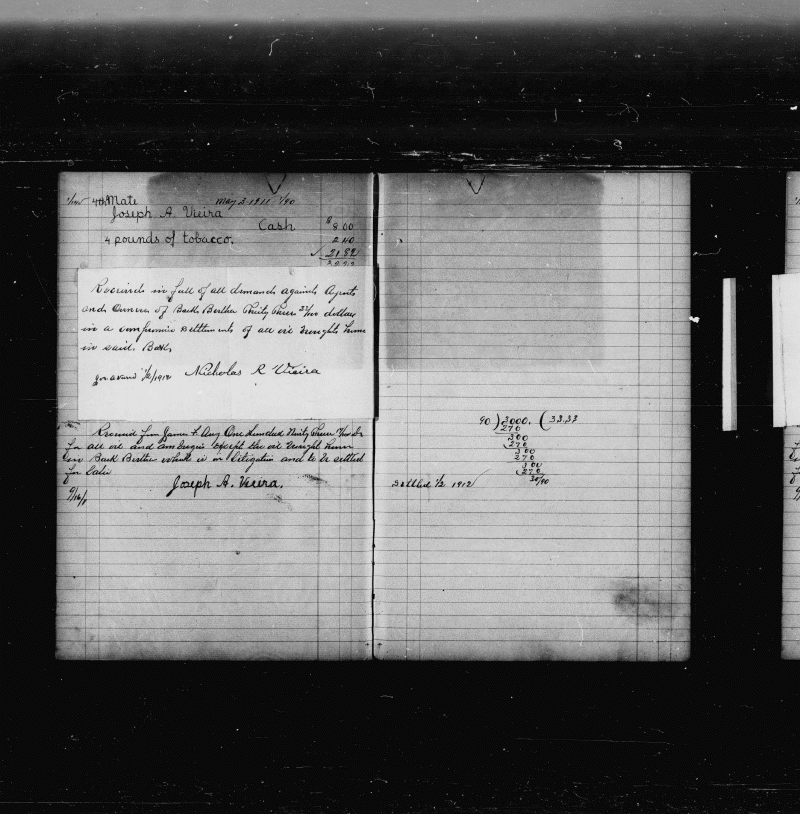 4th Mate May 2-1911 1/90
Joseph A. Vieira
Cash $ 8 00
4 pounds of tobacco. 2 40
Received in full of all demands against Agents
and Owners of Bark Bertha Thirty Three 33/100 dollars
in a compromise settlement of all oil brought home
in said Bark
1/2/1912 Nicholas R Vieira
Received from James F. Avery One Hundred Thirty Three
for all oil and ambergris except the oil brought home
in Bark Bertha which is in litigation and to be settled
for later
Joseph A. Vieira.
90)3000.(33.33
270
300
270
300
270
300
270
30/90
Settled 1/2 1912